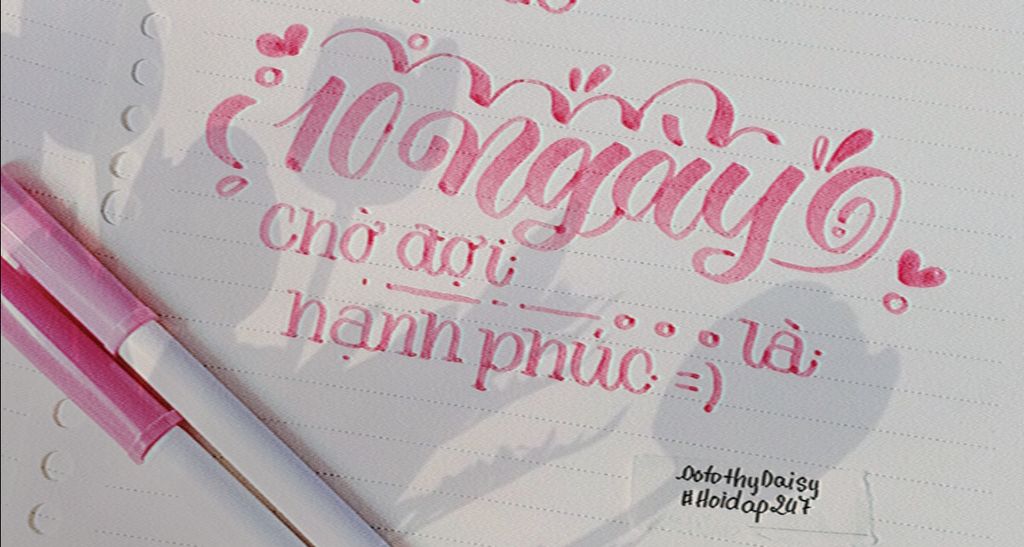 10 ngày
chờ đợi
... là
hạnh phúc =)
DotothyDaisy
#Hoidap247